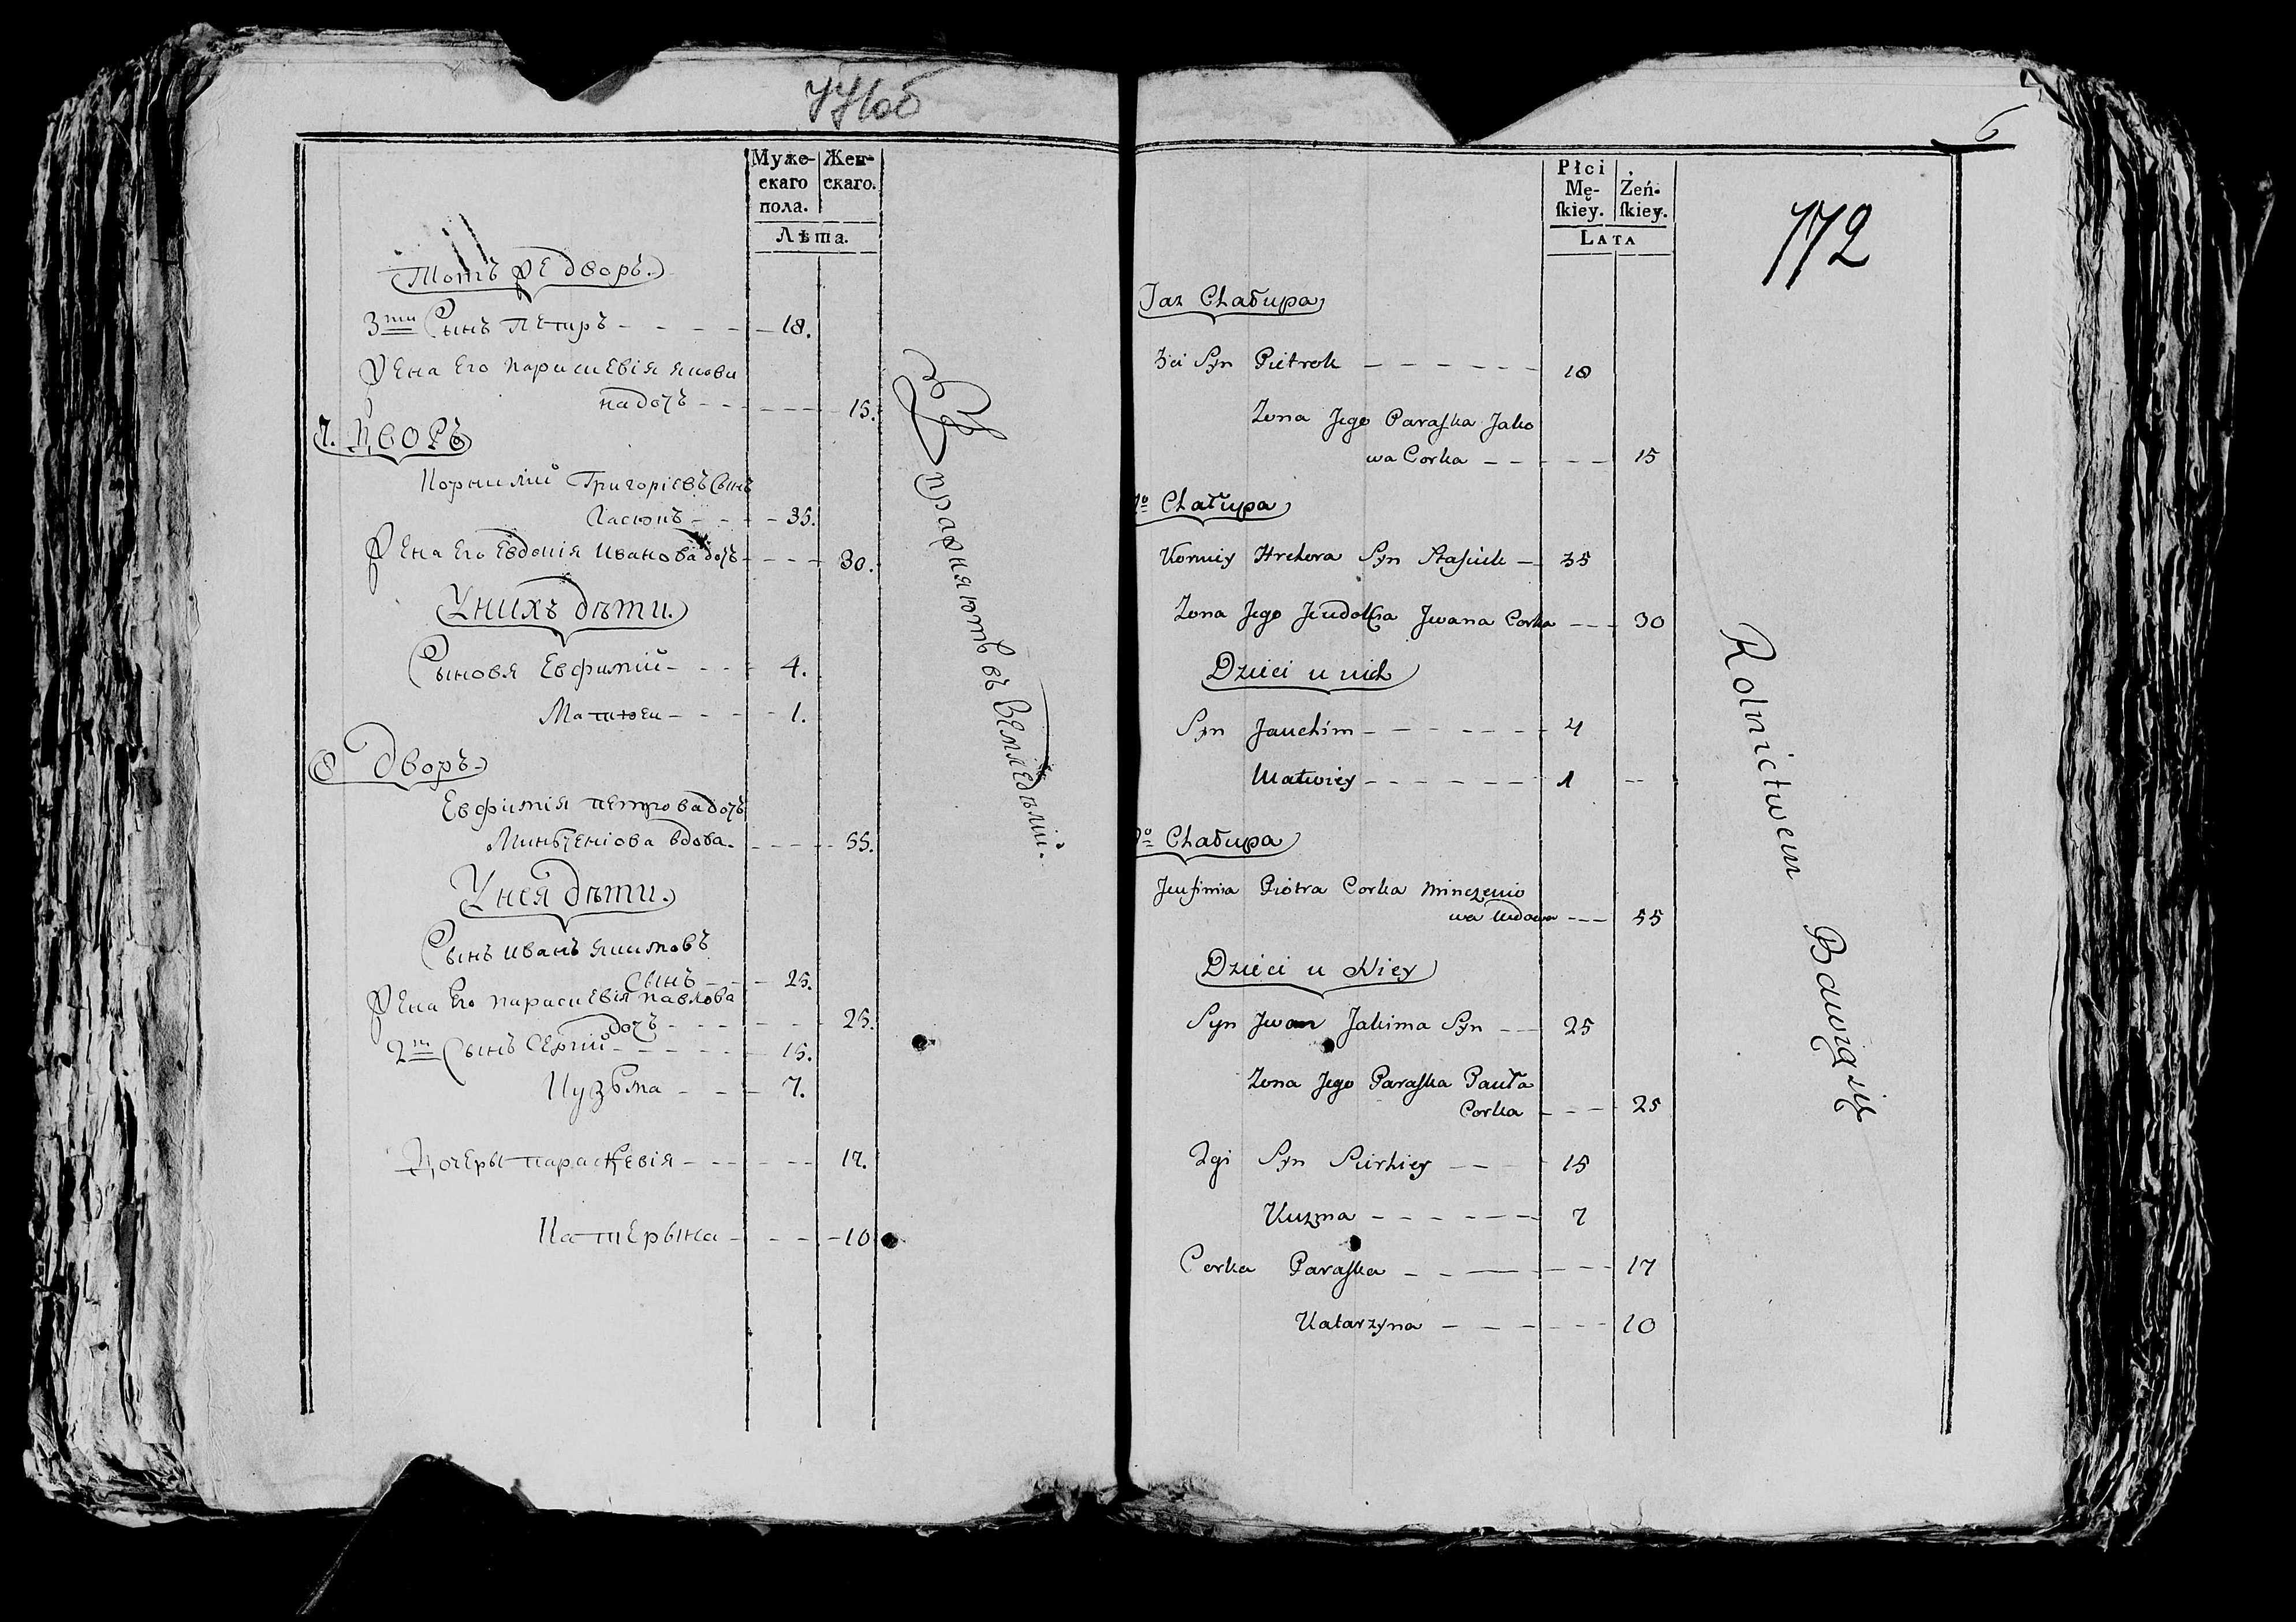 Муже-
скаго
пола.
Жен-
скаго.
Лѣта.
Тотъ же дворъ.
3ти Сынъ Петръ - - - - - 18.
Жена Его Параскевія Якови
на дочь - - - - - 15.
7. Дворъ
Корнилій Григоріевъ Сынъ
- - - 35.
Жена Его Евдокія Иванова дочь - - - - 30.
У нихъ дѣти.
Сыновя Евфимій - - - - 4.
Матвѣи - - - - 1.
8 Дворъ
Евфимія Петрова дочь
Минченіова вдова. - - - - 55.
У нея дѣти.
Сынъ Иванъ Якимовъ
Сынъ - - - 25.
Жена Его Параскевія Павлова
дочь - - - - - 25.
2й Сынъ Сергій - - - - - 15.
Кузьма - - - 7.
Дочеры Параскевія - - - - - 17.
Катерына - - - - - 10
Упражняютъ въ Земледѣліи.
6
172
Płci
Mę-
ſkiey.
Żeń-
ſkiey.
LATA
Taz Chałupa
3ci Syn Pietrok - - - - - - 18
Zona Jego Paraska Jako
wa Corka - - - - - 15
Chałupa
Korniey Hrehora Syn Stasiuk - 35
Zona Jego Jeudokia Jwana Corka - - - 30
Dzieci u nich
Syn Jauchim - - - - - - - 4
Matwiey - - - - - - - 1 --
Chałupa
Jeufimia Piotra Corka Minczenio
wa Wdowa - - - 55
Dzieci u Niey
Syn Jwan Jakima Syn - - - 25
Zona Jego Paraska Pauła
Corka - - - - 25
2gi Syn Sierhiey - - - 15
Kuzma - - - - - - - 7
Corka Paraska - - - - - - 17
Katarzyna - - - - - - 10
Rolnictwem Bawią się